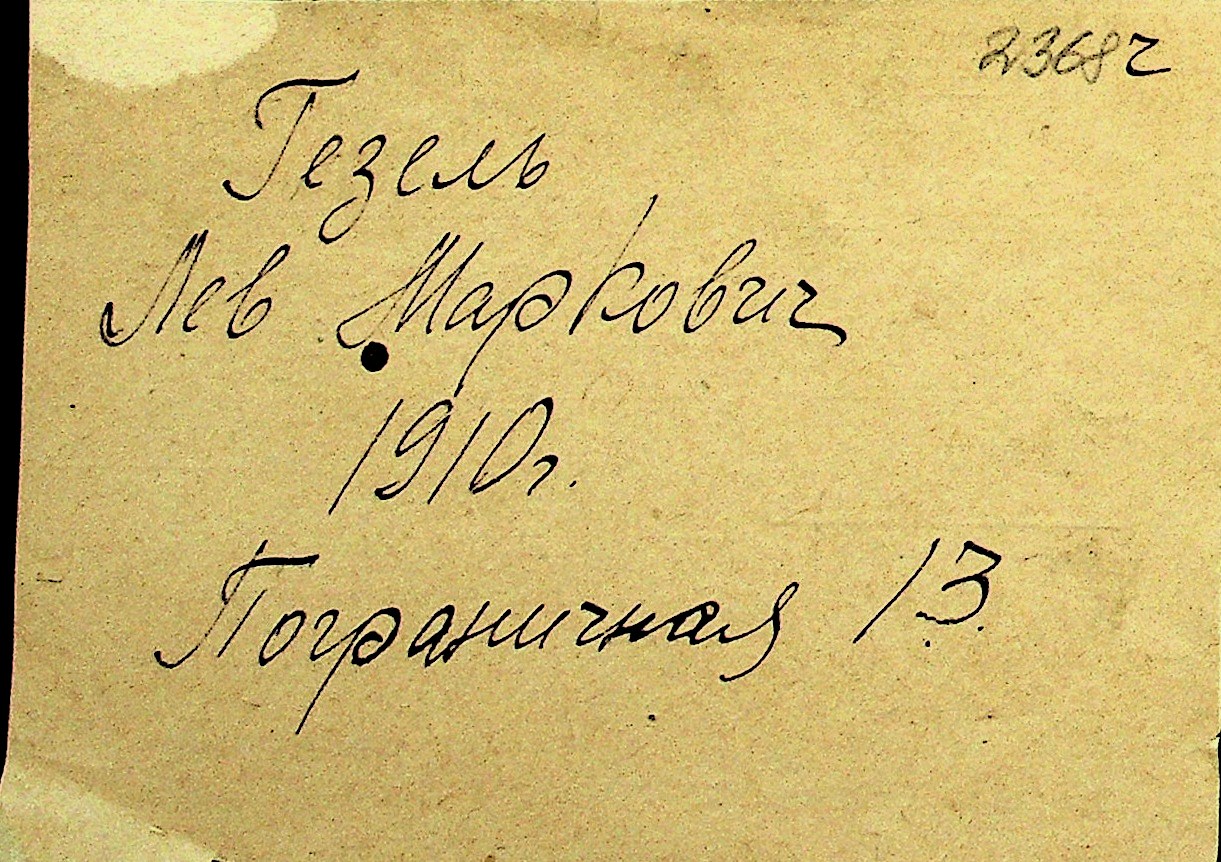 2368ч
Гезель
Лев Маркович
1910г.
Пограничная 13.